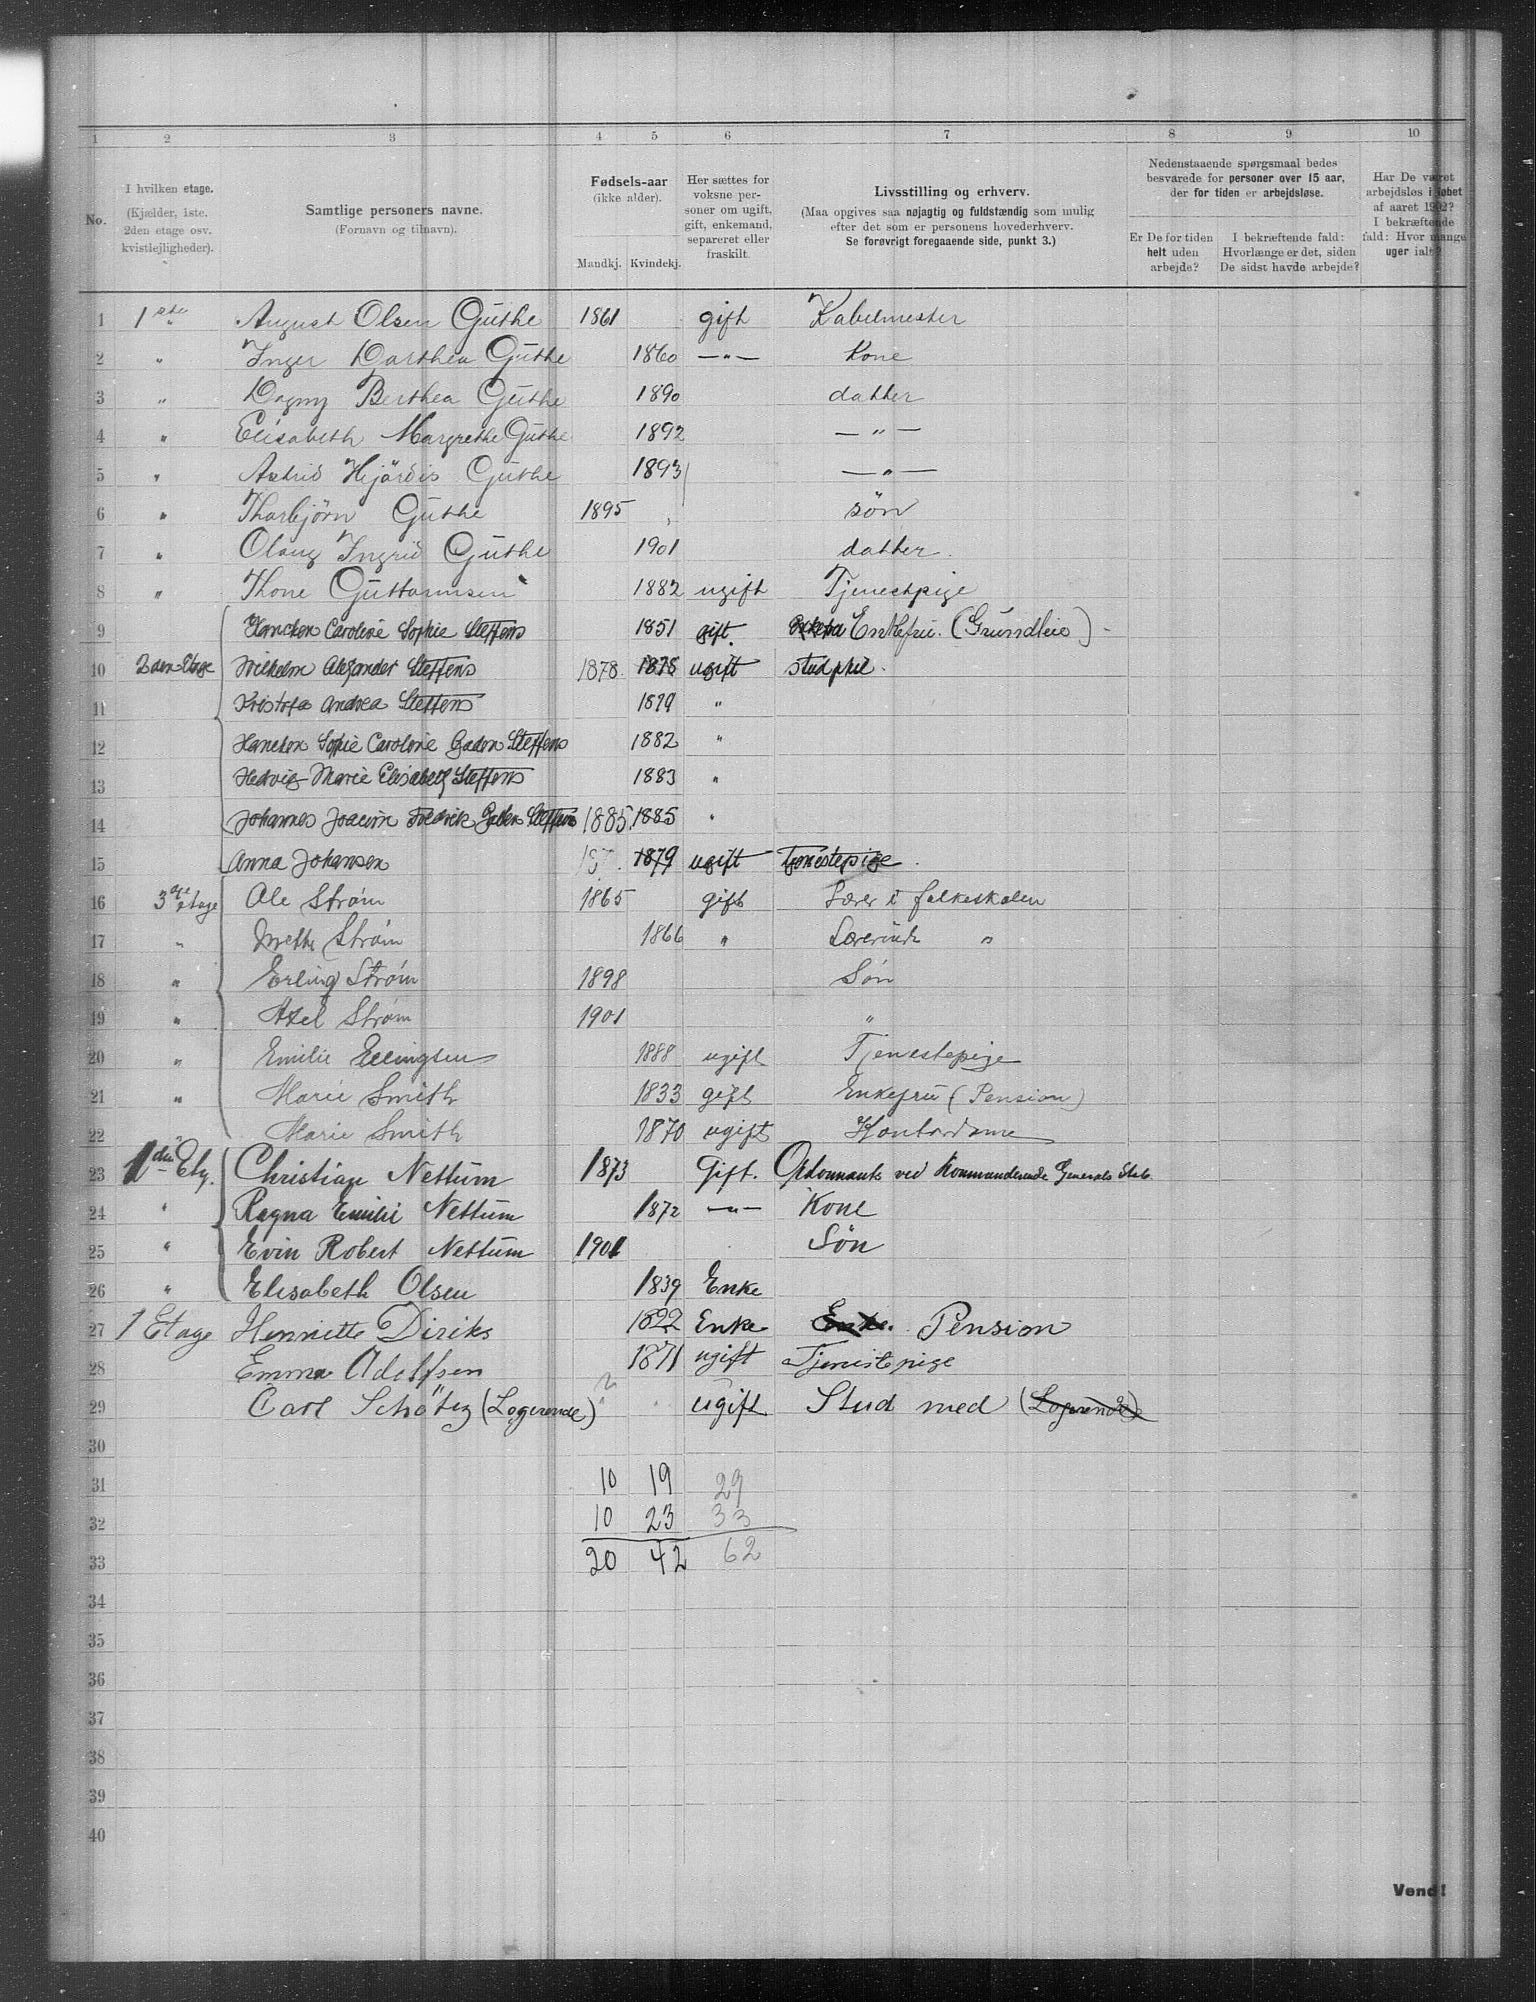 1 2 3 4 5 6 7 8 9 10
No.
I hvilken etage.
(Kjælder, 1ste.
2den etage osv.
kvistlejligheder).
Samtlige personers navne.
(Fornavn og tilnavn).
Fødsels-aar
(ikke alder).
Mandkj. Kvindekj.
Her sættes for
voksne per-
soner om ugift,
gift, enkemand,
separeret eller
fraskilt.
Livsstilling og erhverv.
(Maa opgives saa nøjagtig og fuldstændig som mulig
efter det som er personens hovederhverv.
Se forøvrigt foregaaende side, punkt 3.)
Nedenstaaende spørgsmaal bedes
besvarede for personer over 15 aar,
der for tiden er arbejdsløse.
Er De for tiden
helt uden
arbejde?
I bekræftende fald:
Hvorlænge er det, siden
De sidst havde arbejde?
Har De været
arbejdsløs i løbet
af aaret 1902?
I bekræftende
fald: Hvor mange
uger ialt?
1 1ste August Olsen Guthe 1861 gift Kabelmester
2 " Inger Dorthea Guthe 1860 —"— Kone
3 " Dagny Berthea Guthe 1890 datter
4 " Elisabeth Margrethe Guthe 1892 —"—
5 " Astrid Hjördis Guthe 1893 —"—
6 " Thorbjørn Guthe 1895 søn
7 " Olaug Ingrid Guthe 1901 datter.
8 " Thone Guttormsen 1882 ugift Tjenestpige
9 Hanchen Caroline Sophie Steffens 1851 gift. Enkefru. (Grundleie)
10 2den Etage Wilhelm Alexander Steffens 1878 1878 ugift stud phil.
11 Kristofa Andrea Steffens 1879 "
12 Hanchen Sofie Caroline Gaden Steffens 1882 "
13 Hedvig Marie Elisabeth Steffens 1883 "
14 Johannes Joacim Fredrik Gaden Steffens 1885 1885 "
15 Anna Johansen 1879 ugift tjenestepige.
16 3die etage Ole Strøm 1865 gift Lærer i folkeskolen
17 " Mette Strøm 1866 " Lærerinde "
18 " Erling Strøm 1898 Søn
19 " Axel Strøm 1901 "
20 " Emilie Ellingsen 1888 ugift Tjenestepige
21 " Marie Smith 1833 gift Enkefru (Pension)
22 " Marie Smith 1870 ugift Kontordame
23 1den Etg. Christian Nettum 1873 Gift. Ordonnants ved Kommanderende Generals Stab.
24 " Ragna Emilie Nettum 1872 —"— Kone
25 " Evin Robert Nettum 1901 Søn
26 " Elisabeth Olsen 1839 Enke
27 1 Etage Henriette Diriks 1822 Enke Enke. Pension
28 Emma Adolfsen 1871 ugift Tjenistepige
29 Carl Schøtz (Logerende) ugift Stud med (Logerende)
30
31 10 19 29
32 10 23 33
33 20 42 62
34
35
36
37
38
39
40
Vend!